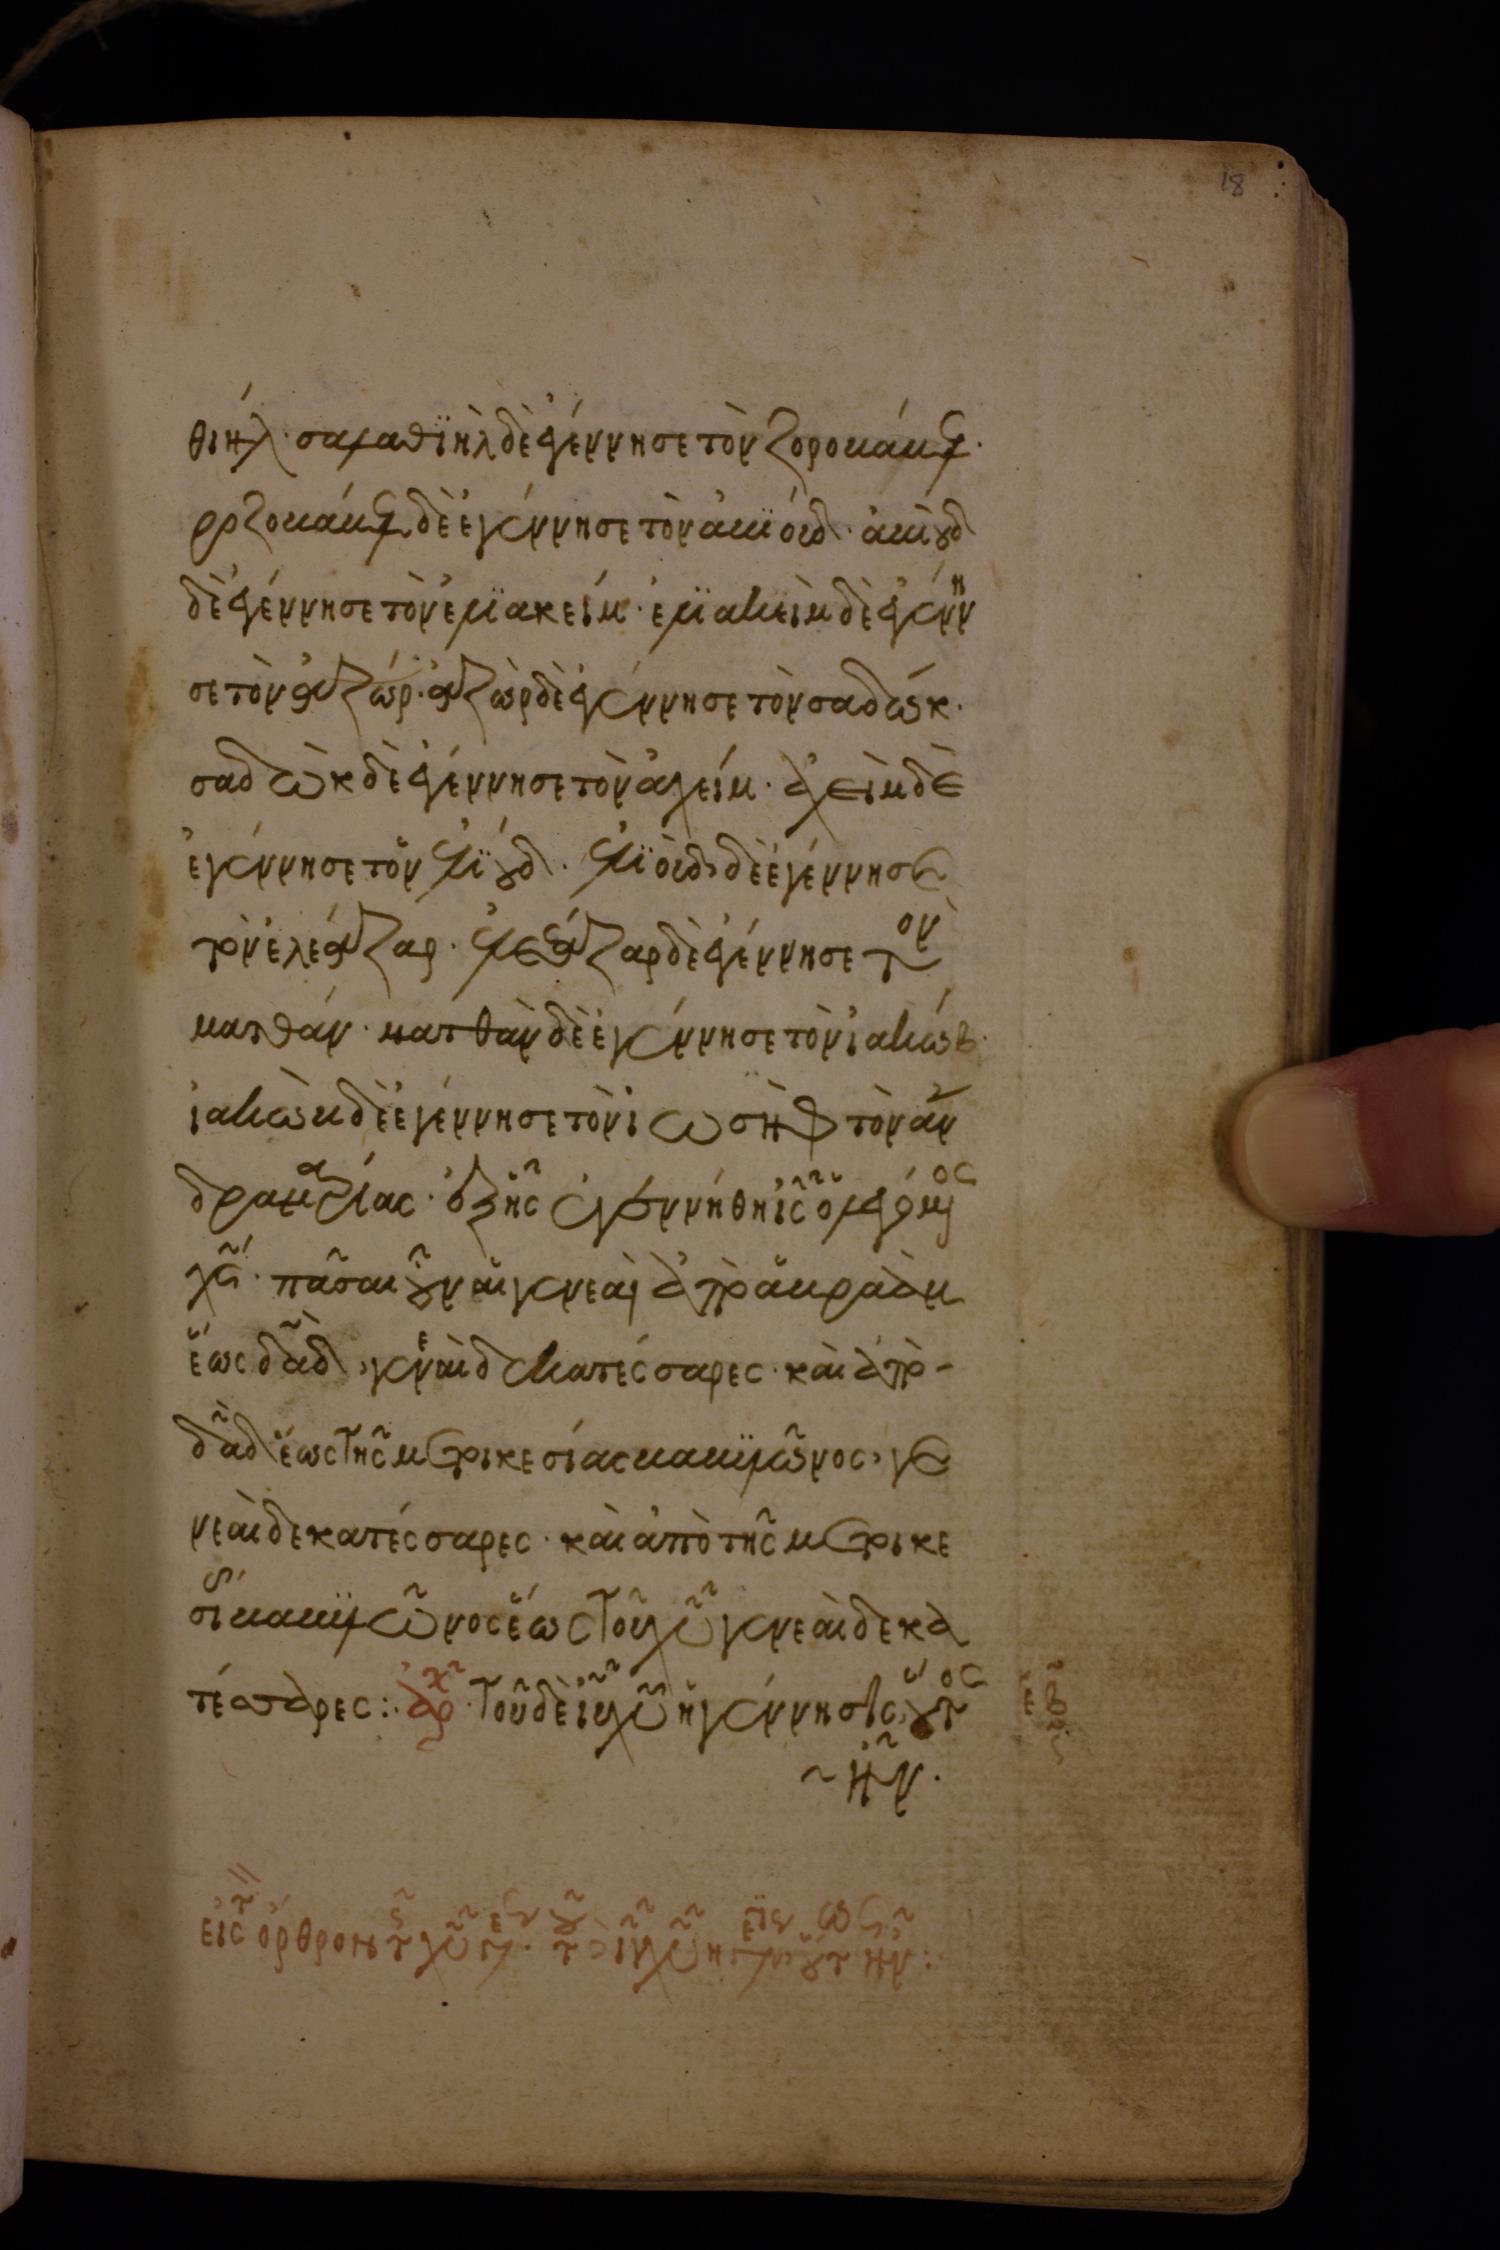 18
θιήλ· σαλαθϊὴλ δὲ ἐγέννησε τὸν ζοροβάβελ·
ζοροβάβελ δὲ ἐγέννησε τὸν ἀβϊούδ· ἀβιοὺδ
δὲ ἐγέννησε τὸν ἐλϊακείμ· ἐλϊακεὶμ δὲ ἐγέννη
σε τὸν ἀζώρ· ἀζὼρ δὲ ἐγέννησε τὸν σαδώκ·
σαδὼκ δὲ ἐγέννησε τὸν ἀχείμ· ἀχεὶμ δὲ
ἐγέννησε τὸν ἐλϊούδ· ἐλϊοὺδ δὲ ἐγέννησε
τὸν ἐλεάζαρ· ἐλεάζαρ δὲ ἐγέννησε τὸν
ματθάν· ματθὰν δὲ ἐγέννησε τὸν ἰακώβ·
ἰακὼβ δὲ ἐγέννησε τὸν ἰωσὴφ τὸν ἄν
δρα μαρίας· ἐξ ἧς ἐγεννήθη ι̅ς̅ ὁ λεγόμενος
χ̅ς̅· πᾶσαι οὖν αἱ γενεαὶ ἀπὸ ἀβραὰμ
ἕως δα̅δ̅, γενεαὶ δεκατέσσαρες· καὶ ἀπὸ
δα̅δ̅ ἕως τῆς μετοικεσίας βαβυλῶνος, γε
νεαὶ δεκατέσσαρες· καὶ ἀπὸ τῆς μετοικε
σίας βαβυλῶνος ἕως τοῦ χ̅υ̅ γενεαὶ δεκα
τέσσαρες: ἀρχ τοῦ δὲ ι̅υ̅ χ̅υ̅ ἡ γέννησις οὕτως
ἦν·